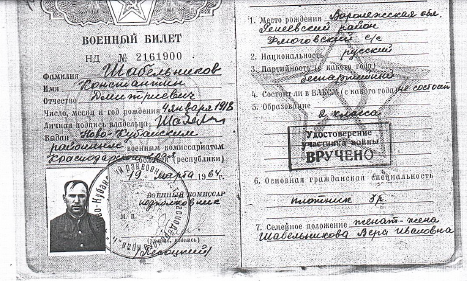 ВОЕННЫЙ БИЛЕТ
НД № 2161900
Фамилия Шабельников
Имя Константин
Отчество Дмитриевич
Число, месяц и год рождения 4 января 1918
Личная подпись владельца
Выдан Ново-Кубанским
районным военным комиссариатом
Краснодарского (республики)
19 марта 1964
ВОЕННЫЙ КОМИССАР
подполковник
М. П.
(подпись)
1. Место рождения Воронежская обл.
район
с/с
2. Национальность русский
3. Партийность (с какого года)
беспартийный
4. Состоит ли в ВЛКСМ (с какого года) не состоит
5. Образование
2 класса
Удостоверение
участника войны
ВРУЧЕНО
6. Основная гражданская специальность
плотник
7. Семейное положение женат-жена
Шабельникова Вера Ивановна